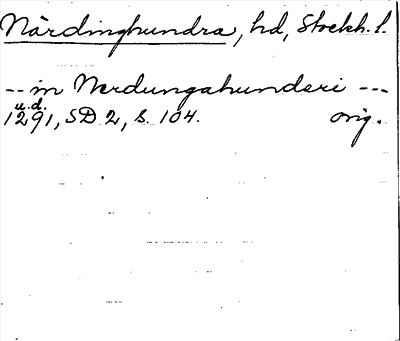 Närdinghundra, hd, Stockh. l.
-- in Nerdungahunderi ---
u.d.
1291, SD 2, s. 104. orig.